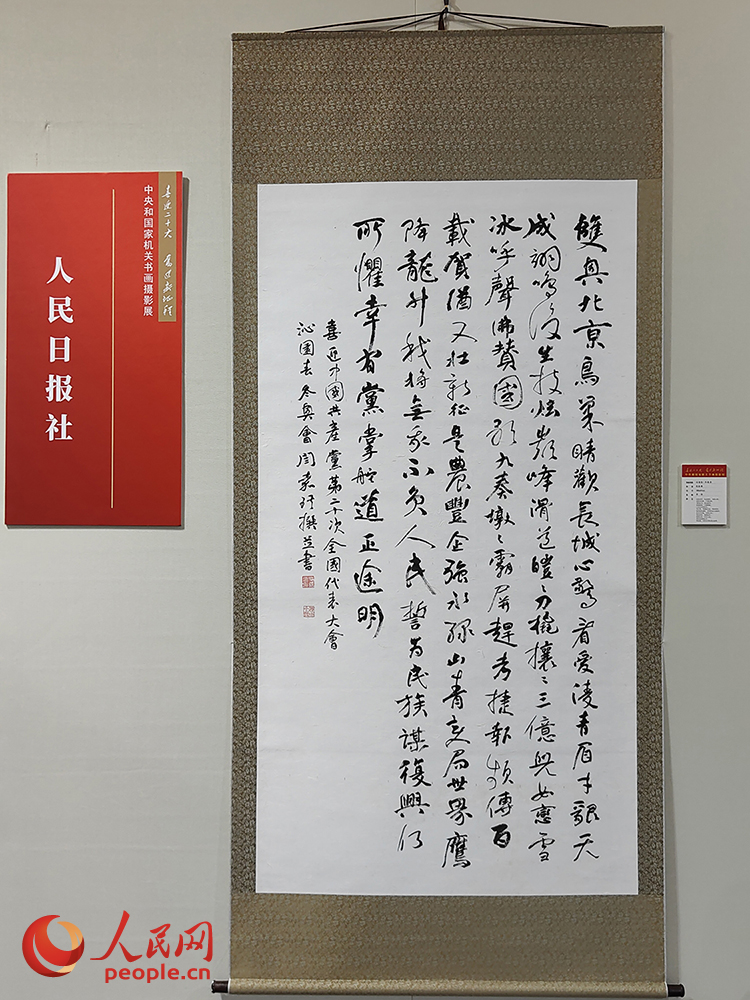 喜迎二十大 奮進新征程
中央和国家机关书画摄影展
人民日报社
雙奧北京鳥巢晴歡長城心驚看愛凌青眉才天
成翊鳴後生技炫巔峰滑道皚〻刀橇攘〻三億兒女戀雪
冰呼聲沸贊國歌九奏墩〻霸屏趕考捷報頻傳百
載賀猶又壯新征是農豐企強水綠山青變局世界鷹
降龍升我將無我不負人民誓為民族謀復興何
所懼幸有黨掌舵道正途明
喜迎中國共產黨第二十次全國代表大會
沁園春冬奧會 撰並書
人民网
people.cn